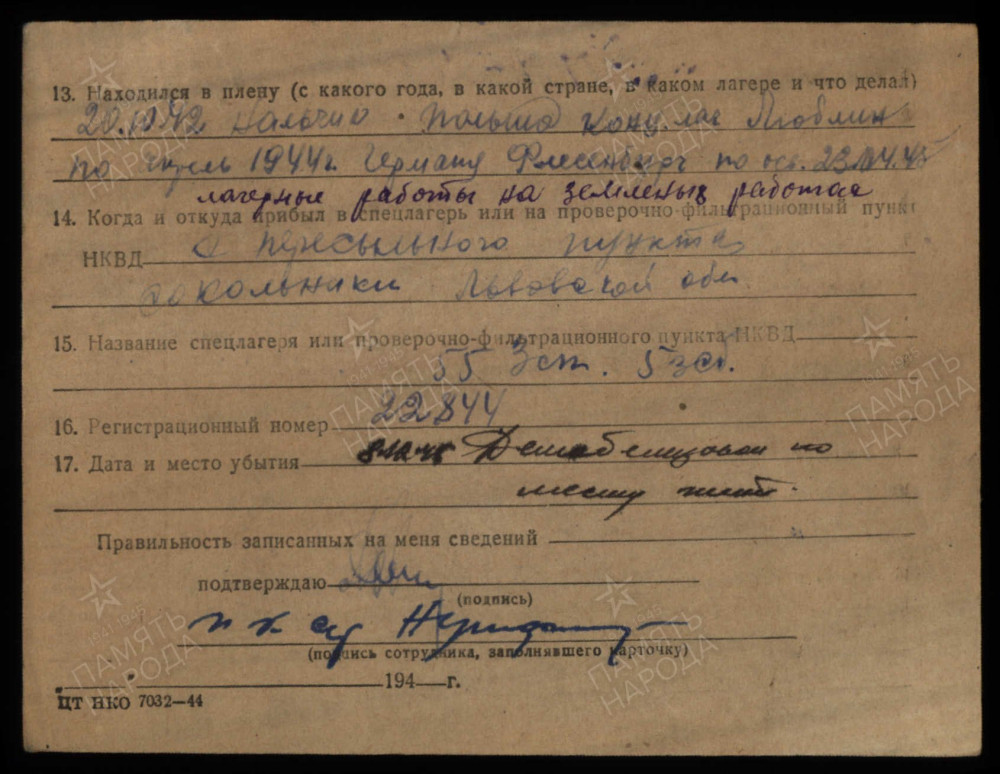 13. Находился в плену (с какого года, в какой стране, в каком лагере и что делал)
20.10.42 Нальчик. Польша конц. лаг Люблин
по апрель 1944г. Флесенбург по 23.04.45
лагерные работы на земленых работах
14. Когда и откуда прибыл в спецлагерь или на проверочно-фильтрационный пункт
НКВД с пересыльного пункта
Сокольники Львовской обл
15. Название спецлагеря или проверочно-фильтрационного пункта НКВД
55 Зсп. 5 зсб.
16. Регистрационный номер 22844
17. Дата и место убытия Демобелизован по
месту жит.
Правильность записанных на меня сведений
подтверждаю
(подпись)
(подпись сотрудника, заполнявшего карточку)
194 г.
ЦТ НКО 7032—44
ПАМЯТЬ НАРОДА
1941-1945